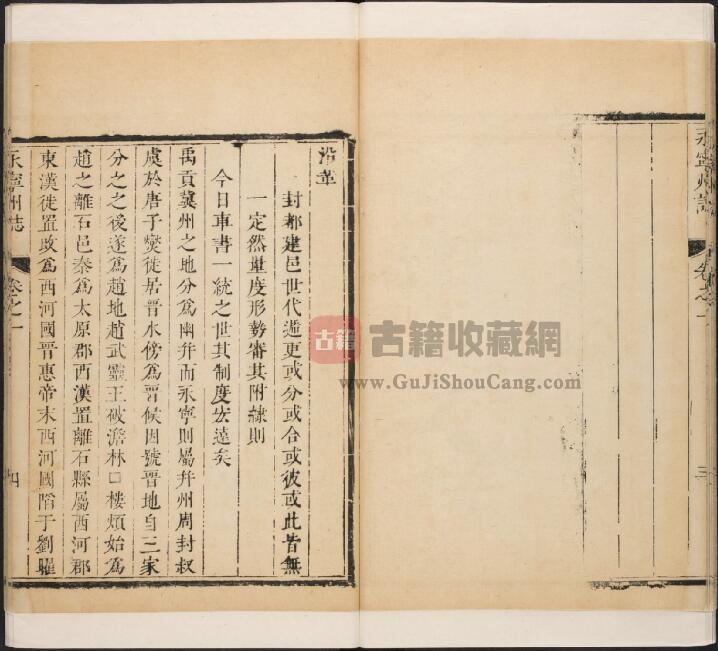 永寧州誌
卷之一
三
沿革
封都建邑世代遞更或分或合或彼或此皆無
一定然量度形勢審其附隷則
今日車書一統之世其制度宏遠矣
禹貢冀州之地分爲幽并而永寧則屬并州周封叔
虞於唐子燮徙居晉水傍爲晉侯因號晉地自三家
分之之後遂爲趙地趙武靈王破澹林口樓煩始爲
趙之離石邑秦爲太原郡西漢置離石縣屬西河郡
東漢徙置改爲西河國晉惠帝末西河國陷于劉曜
永寧州誌
卷之一
四
古籍
古籍收藏網
www.GuJiShouCang.com